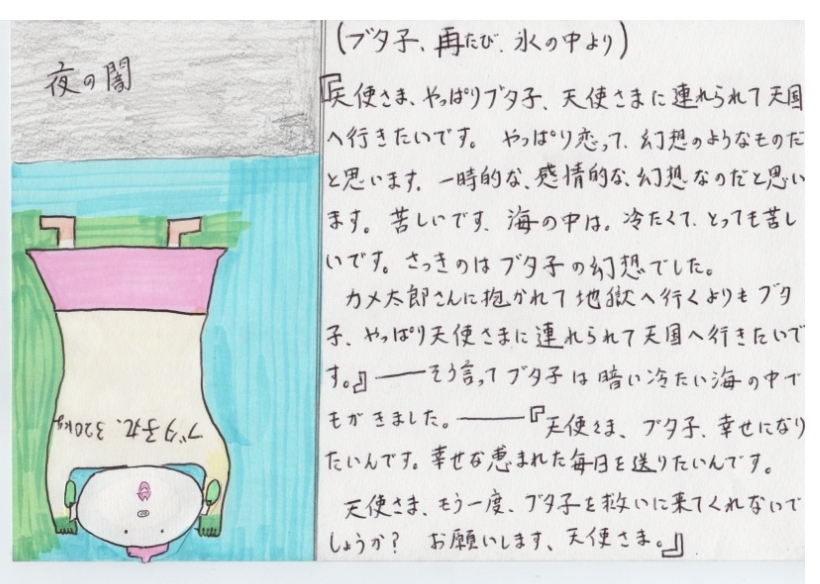 夜の闇
ブタ子丸、320kg
(ブタ子、再たび、氷の中より)
『天使さま、やっぱりブタ子、天使さまに連れられて天国
へ行きたいです。 やっぱり恋って、幻想のようなものだ
と思います。一時的な、感情的な、幻想なのだと思い
ます。苦しいです、海の中は。冷たくて、とっても苦し
いです。さっきのはブタ子の幻想でした。
カメ太郎さんに抱かれて地獄へ行くよりもブタ
子、やっぱり天使さまに連れられて天国へ行きたいで
す。』――そう言ってブタ子は暗い冷たい海の中で
もがきました。――『天使さま、ブタ子、幸せになり
たいんです。幸せな恵まれた毎日を送りたいんです。
天使さま、もう一度、ブタ子を救いに来てくれないで
しょうか? お願いします、天使さま。』